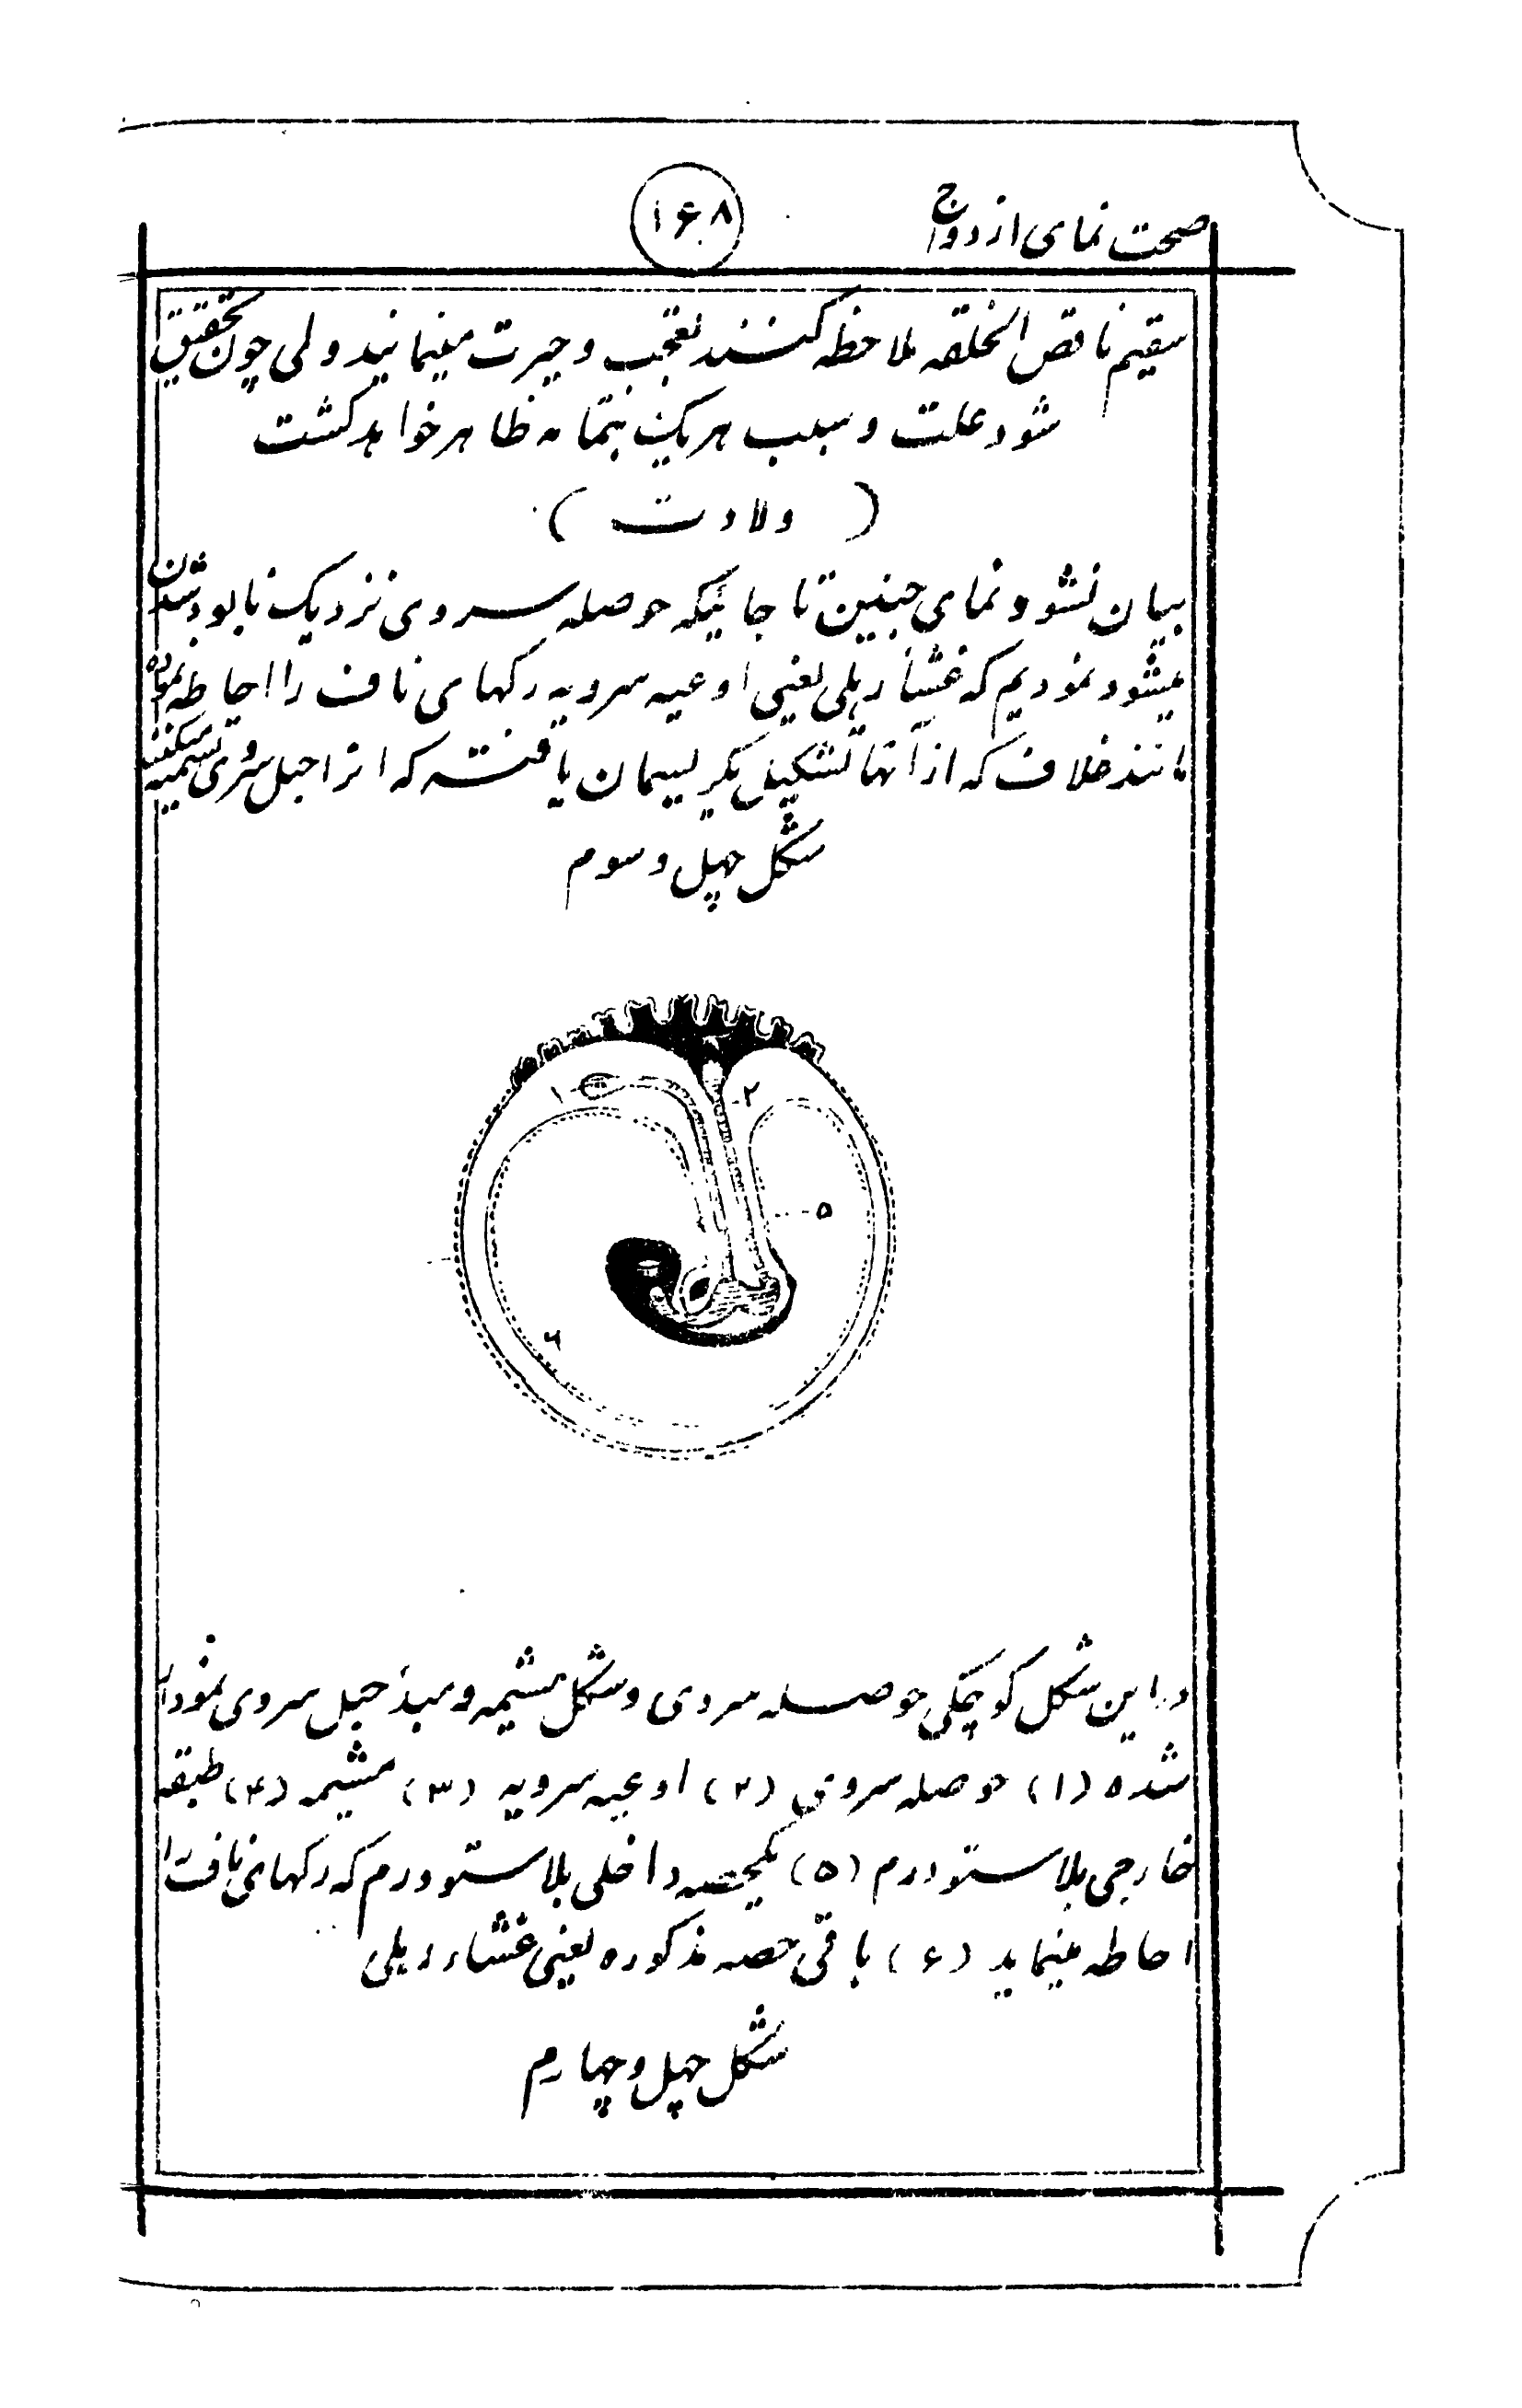 صحت نمای ازدواج
۱۶۸
سقیم ناقص الخلقه ملاحظه کنند تعجب و حیرت مینمایند ولی چون تحقیق
شود علت و سبب هریک بتمامه ظاهر خواهد گشت
( ولادت )
بیان نشو و نمای جنین تا جائیکه حوصله سروی نزدیک نابود شدن
میشود نمودیم که غشاء ریلی یعنی اوعیه سرویه رکهای ناف را احاطه نموده
مانند غلاف که از آنها تشکیل یکریسمان یافته که انرا حبل سروی تسمیه میکنند
شکل چهل و سوم
۱
۲
۵
۶
در این شکل کوچکی حوصله سروی و شکل مشیمه و مبدء حبل سروی نمودار
شده (۱) حوصله سروی (۲) اوعیه سرویه (۳) مشیمه (۴) طبقه
خارجی بلاستودرم (۵) یکحصه داخلی بلاستودرم که رکهای ناف را
احاطه مینماید (۶) باقی حصه مذکوره یعنی غشاء ریلی
شکل چهل و چهارم